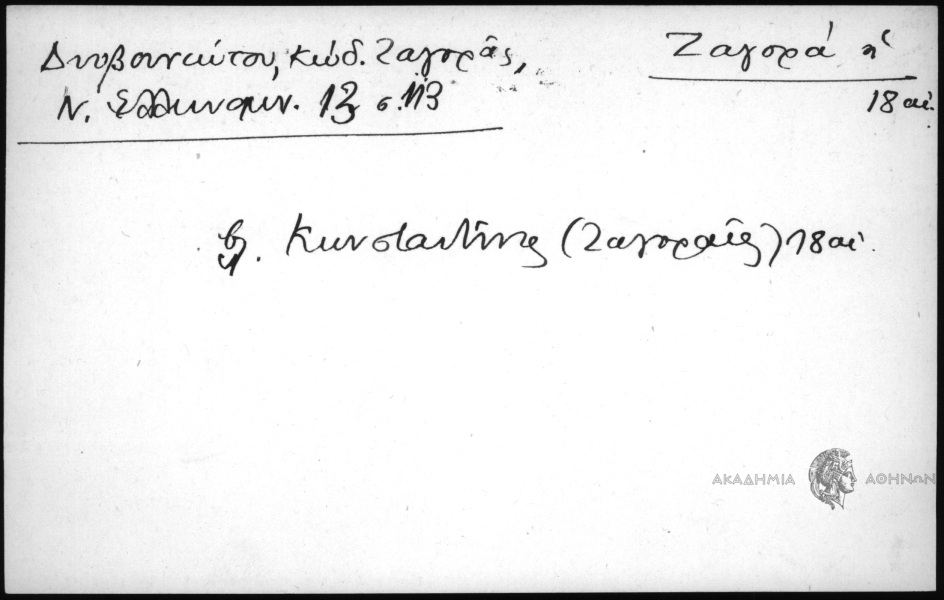 Δυοβουνιώτου, Κώδ. Ζαγορᾶς,
Ν. Ἑλληνομν. 13 σ. 113
Ζαγορά ἡ
18 αἰ.
βλ. Κωνσταντῖνος (Ζαγοραῖος) 18 αἰ.
ΑΚΑΔΗΜΙΑ ΑΘΗΝΩΝ